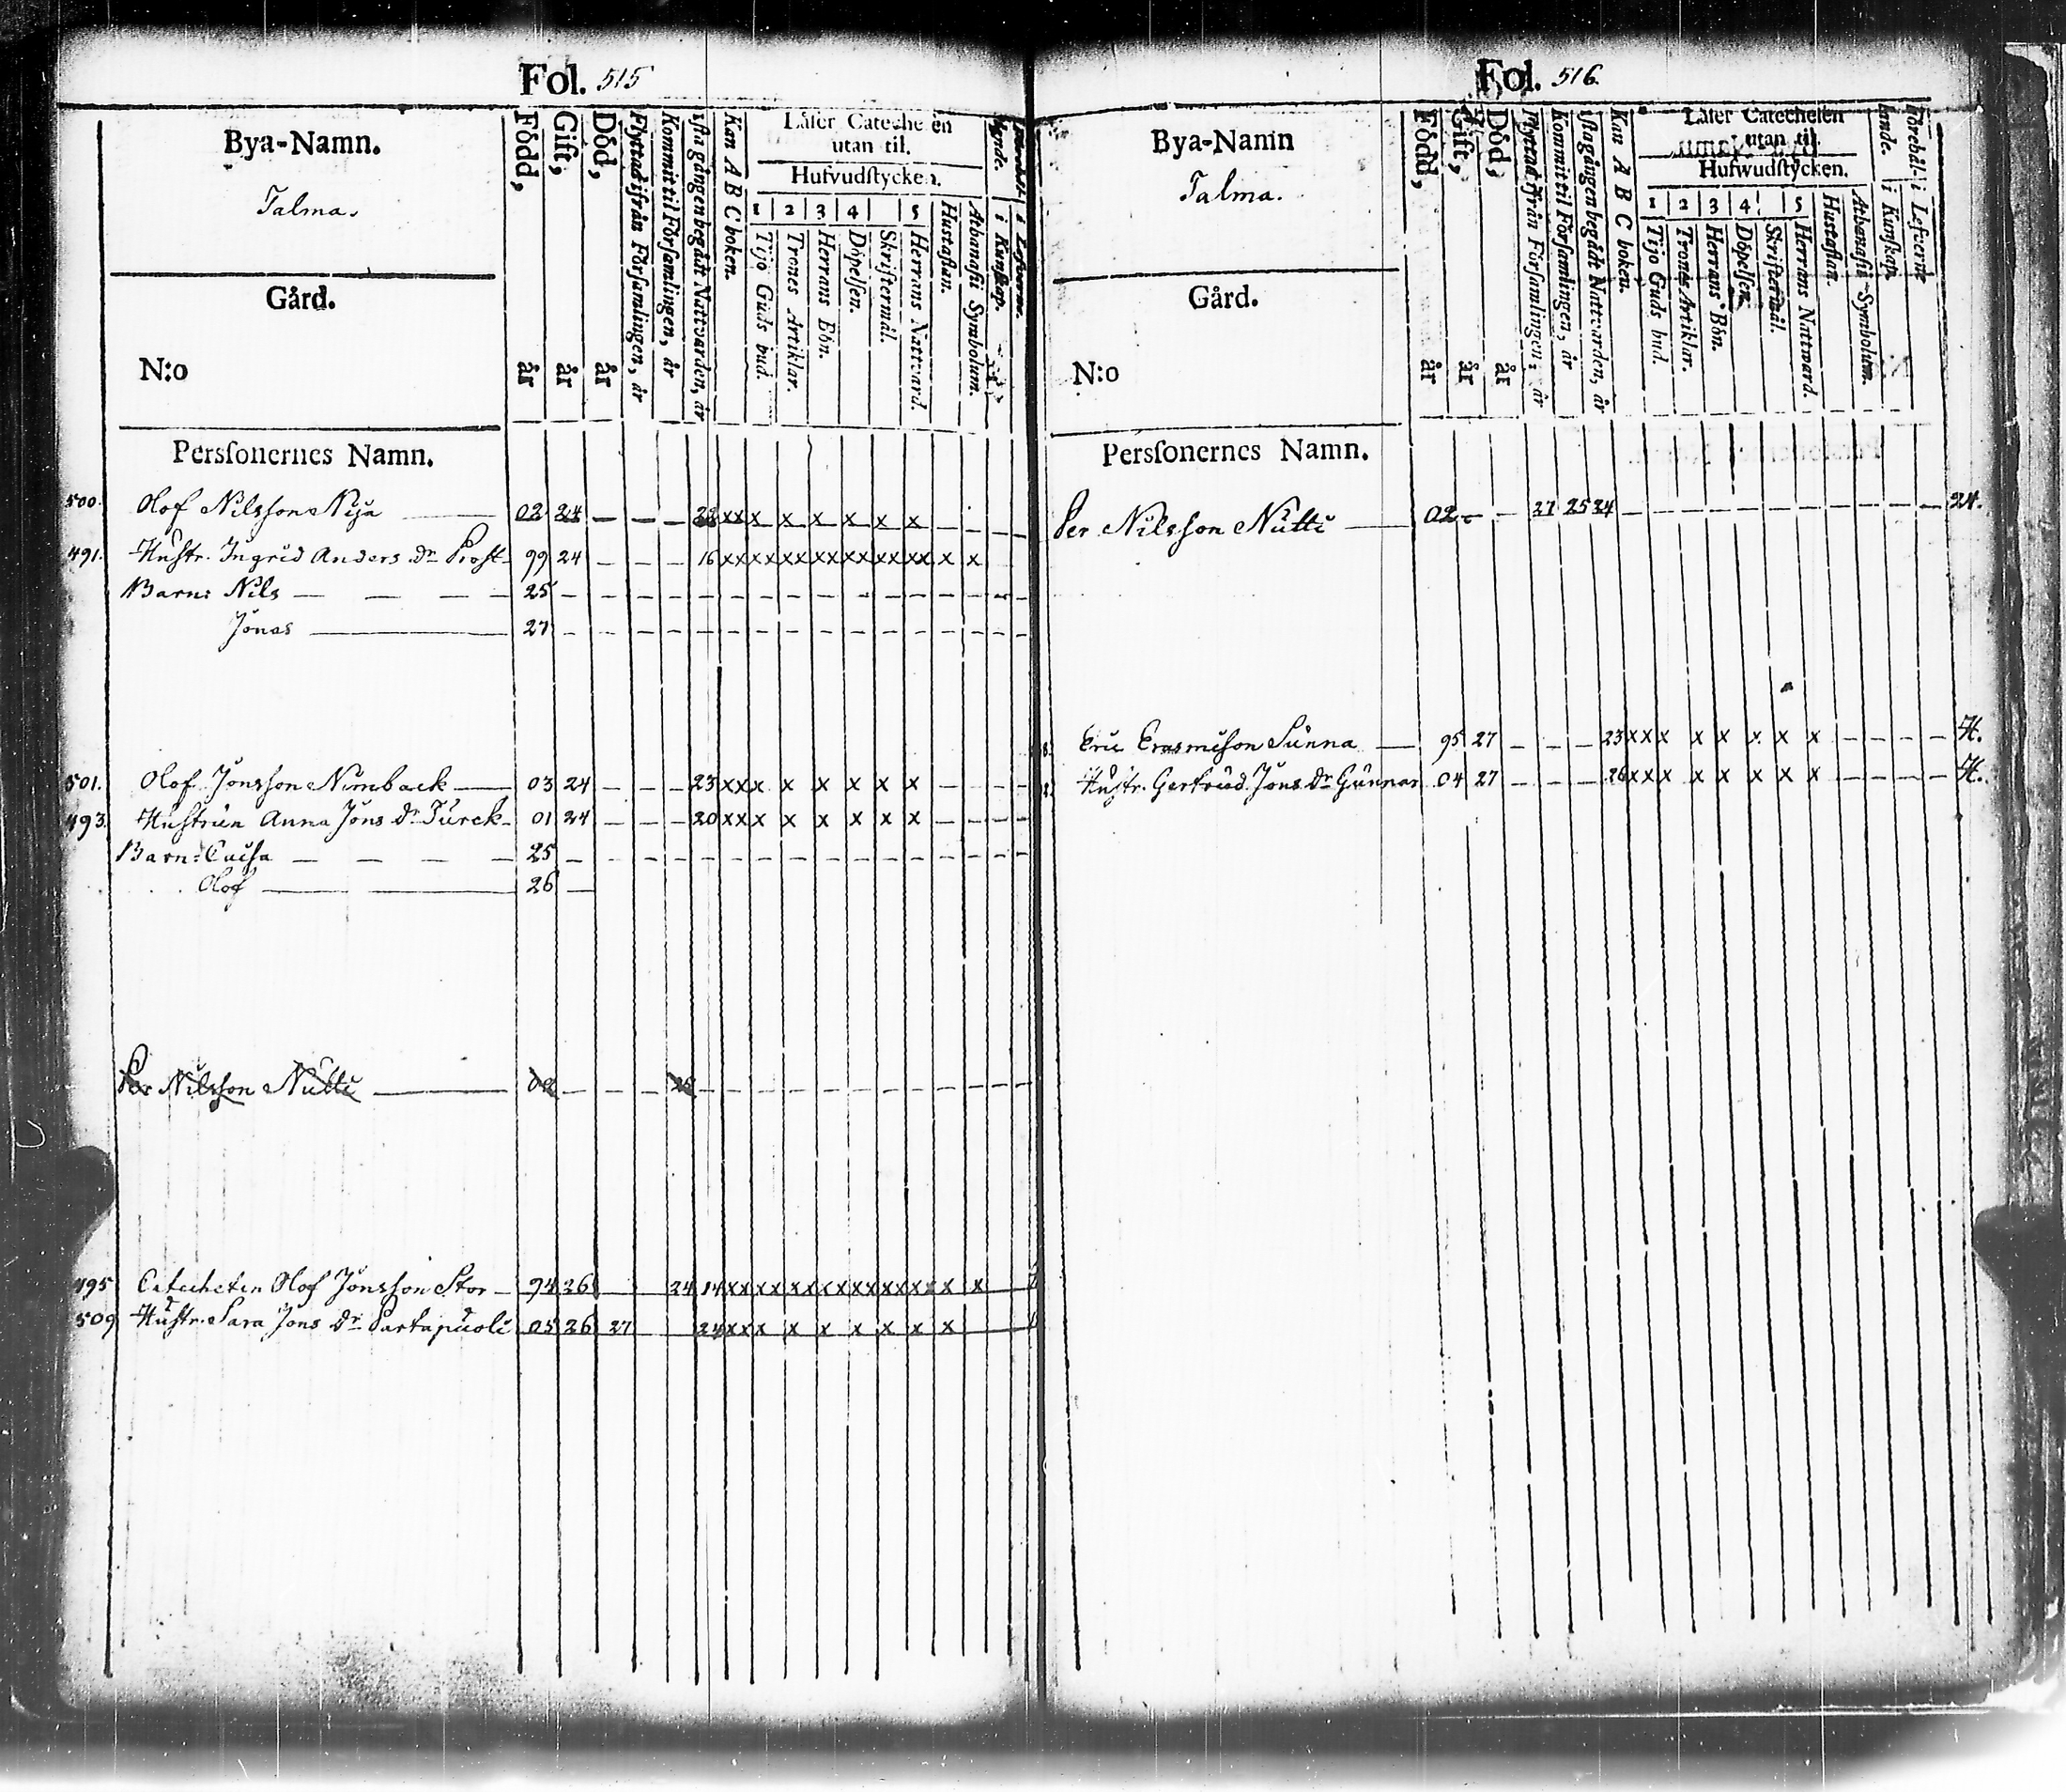 Fol. 515
Bya-Namn.
Talma.
Gård.
N:o
Född, år
Gift, år
Död, år
Flyttad ifrån Församlingen, år
Kommit til Församlingen, år
ſta gången begått Nattvarden, år
Kan A B C boken.
Läſer Catecheſen
utan til.
Hufvudſtycken.
1 2 3 4 5
Tijo Guds bud.
Trones Artiklar.
Herrans Bön.
Döpelſen.
Skriftermål.
Herrans Nattvard.
Huſtaflan.
Athanaſii Symbolum.
i Kunſkap.
i Lefverne.
Perſonernes Namn.
500. Olof Nilsson Nija 02 24 — — — 22 xxx x x x x x — —
491. Hustr. Ingrid Anders Dr Prost 99 24 — — — 16 xx xx xx xx xx xx xx x x
Barn: Nils — 25 — — — — — — — — — — — — — —
Jonas — 27 — — — — — — — — — — — — — —
501. Olof Jonsson Nimback — 03 24 — — — 23 xxx x x x x x — — — —
493. Hustrun Anna Jons Dr Turck 01 24 — — — 20 xxx x x x x x — — — —
Barn: — 25 — — — — — — — — — — — — — —
Olof — 26 —
Per Nilsson Nutti — 02 — — — 25 — — — — — — — — — — —
495 Catecheten Olof Jonsson Stor — 94 26 24 14 xx xx xx xx xx xx xx x x
509 Hustr. Sara Jons Dr Partapuoli 05 26 27 24 xxx x x x x x x
Fol. 516
Bya-Namn
Talma.
Gård.
N:o
Född, år
Gift, år
Död, år
Flyttad ifrån Församlingen, år
Kommit til Församlingen, år
ſta gången begått Nattvarden, år
Kan A B C boken.
Läſer Catecheſen
utan til.
Hufwudſtycken.
1 2 3 4 5
Tijo Guds bud.
Trones Artiklar.
Herrans Bön.
Döpelſen.
Skriftermål.
Herrans Nattward.
Huſtaflan.
Athanaſii Symbolum.
lande. i Kunſkap.
Förehål- i Lefverne
Perſonernes Namn.
Per Nilsson Nutti — 02 — — 27 25 24 — — — — — — — — — — 24.
Eric Erasmison Sunna — 95 27 — — — 23 xxx x x x x x — — — — H.
Hustr. Gertrud Jons Dr Gunnar 04 27 — — — 26 xxx x x x x x — — — — H.